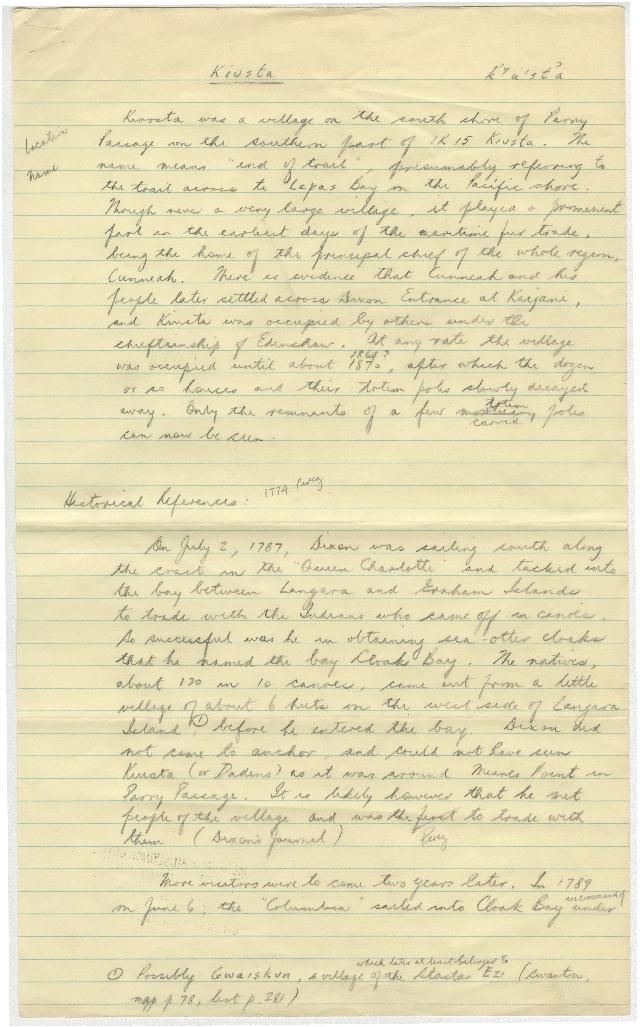 Kiusta kʸu'st'a
Kioosta was a village on the south shore of Parry
Location
Passage on the southern part of IR 15 Kiusta. The
Name
name means "end of trail", presumably referring to
the trail across to Lepas Bay on the Pacific shore.
Though never a very large village, it played a prominent
part in the earliest days of the maritime fur trade,
being the home of the principal chief of the whole region,
Cunneah. There is evidence that Cunneah and his
people later settled across Dixon Entrance at Kaigani,
and Kiusta was occupied by others under the
chieftainship of Edenshaw. At any rate the village
1860?
was occupied until about 1870, after which the dozen
or so houses and their totem poles slowly decayed
away. Only the remnants of a few mortuary poles
totem
carved
can now be seen.
Historical References: 1774 Perez
On July 2, 1787, Dixon was sailing south along
the coast in the "Queen Charlotte" and tacked into
the bay between Langara and Graham Islands
to trade with the Indians who came off in canoes.
So successful was he in obtaining sea-otter cloaks
that he named the bay Cloak Bay. The natives,
about 120 in 10 canoes, came out from a little
village of about 6 huts on the west side of Langara
Island, ① before he entered the bay. Dixon did
not come to anchor, and could not have seen
Kiusta (or Dadens) as it was around Meares Point in
Parry Passage. It is likely however that he met
people of the village and was the first to trade with
them (Dixon's Journal) Perez
More visitors were to come two years later. In 1789
on June 6, the "Columbia" sailed into Cloak Bay under
① Possibly Gwaiskun, a village of the Stastas E21 (Swanton,
which later at least belonged to
map p 78, list p. 281)